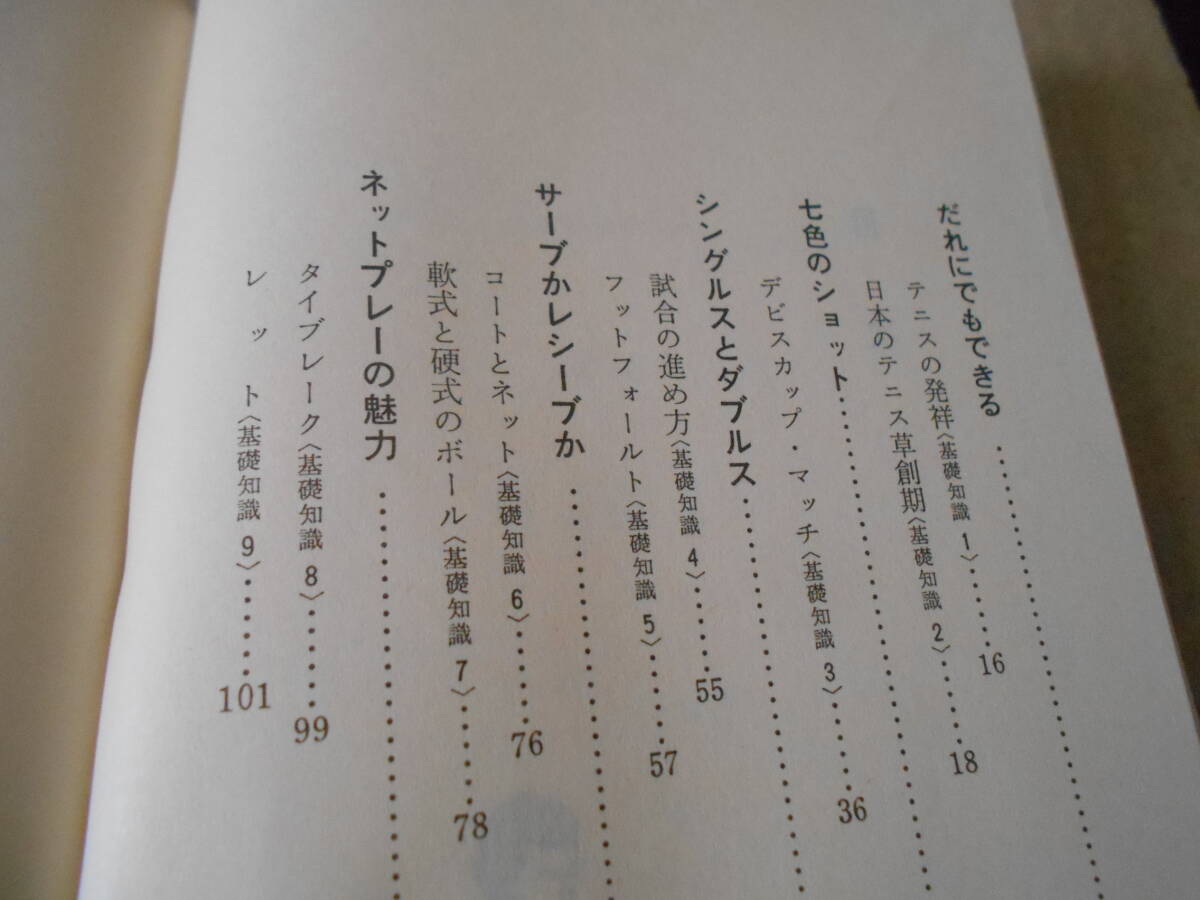 だれにでもできる…………
テニスの発祥〈基礎知識 1〉……16
日本のテニス草創期〈基礎知識 2〉……18
七色のショット…………
デビスカップ・マッチ〈基礎知識 3〉……36
シングルスとダブルス…………
試合の進め方〈基礎知識 4〉……55
フットフォールト〈基礎知識 5〉……57
サーブかレシーブか…………
コートとネット〈基礎知識 6〉……76
軟式と硬式のボール〈基礎知識 7〉……78
ネットプレーの魅力…………
タイブレーク〈基礎知識 8〉……99
レット〈基礎知識 9〉……101